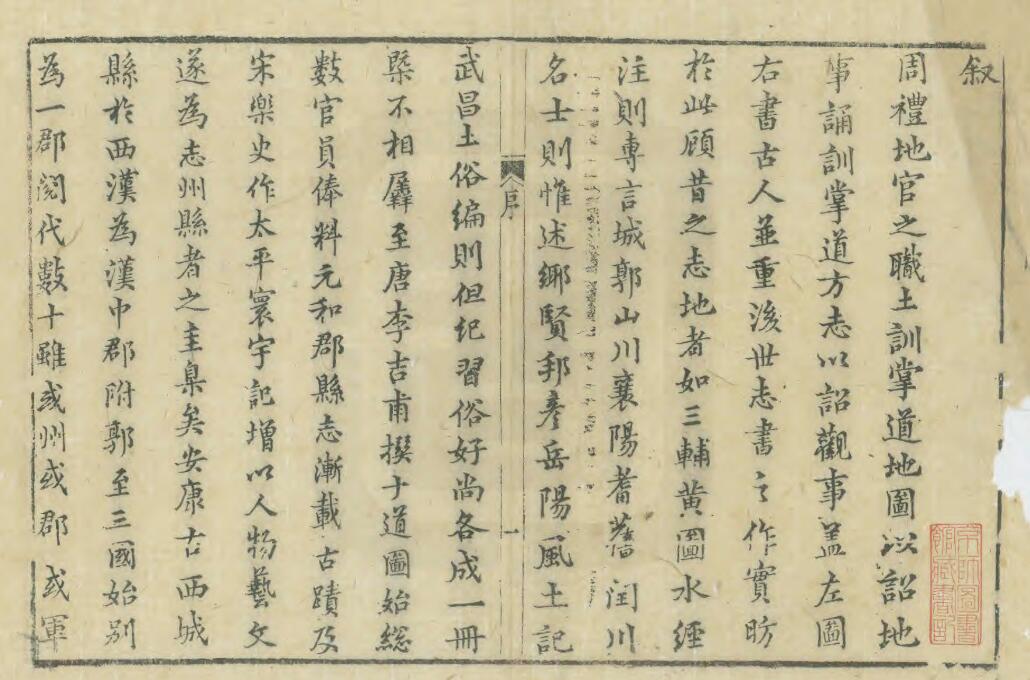 叙
周禮地官之職土訓掌道地圖以詔地
事誦訓掌道方志以詔觀事盖左圖
右書古人並重後世志書之作實昉
於此顧昔之志地者如三輔黄圖水經
注則專言城郭山川襄陽耆舊閏川
名士則惟述鄉賢邦彦岳陽風土記
序
一
武昌土俗編則但紀習俗好尚各成一冊
槩不相羼至唐李吉甫撰十道圖始総
數官員俸料元和郡縣志漸載古蹟及
宋樂史作太平寰宇記增以人物藝文
遂為志州縣者之圭臬矣安康古西城
縣於西漢為漢中郡附郭至三國始别
為一郡閱代數十雖或州或郡或軍